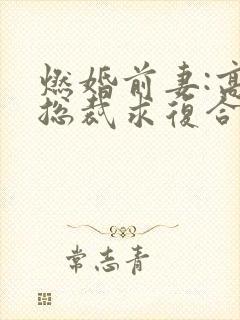 燃婚前妻:高
总裁求復合
常志青